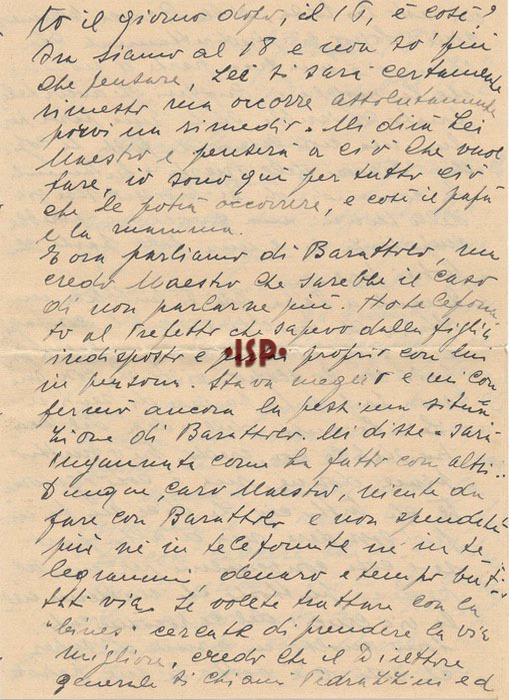 to il giorno dopo, il 17, è così?
Ora siamo al 18 e non so' più
che pensare, Lei si sarà certamente
rimesso ma occorre assolutamente
porvi un rimedio. Mi dirà Lei
Maestro e penserà a ciò che vuol
fare, io sono qui per tutto ciò
che le potrà occorrere, e così il papà
e la mamma.
E ora parliamo di Barattolo, ma
credo Maestro che sarebbe il caso
di non parlarne più. Ho telefona
to al Prefetto che sapevo dalla figlia
indisposto e proprio con lui
in persona. Stava meglio e mi con
fermò ancora la pessima situa
zione di Barattolo. Mi disse = sarà
ingannata come ha fatto con altri.
Dunque, caro Maestro, niente da
fare con Barattolo e non spenderà
più nè in telefonate nè in te
legrammi, denaro e tempo but
tati via. Se volete trattare con la
"Cines" cercate di prendere la via
migliore, credo che il Direttore
generale si chiami ed
·ISP·